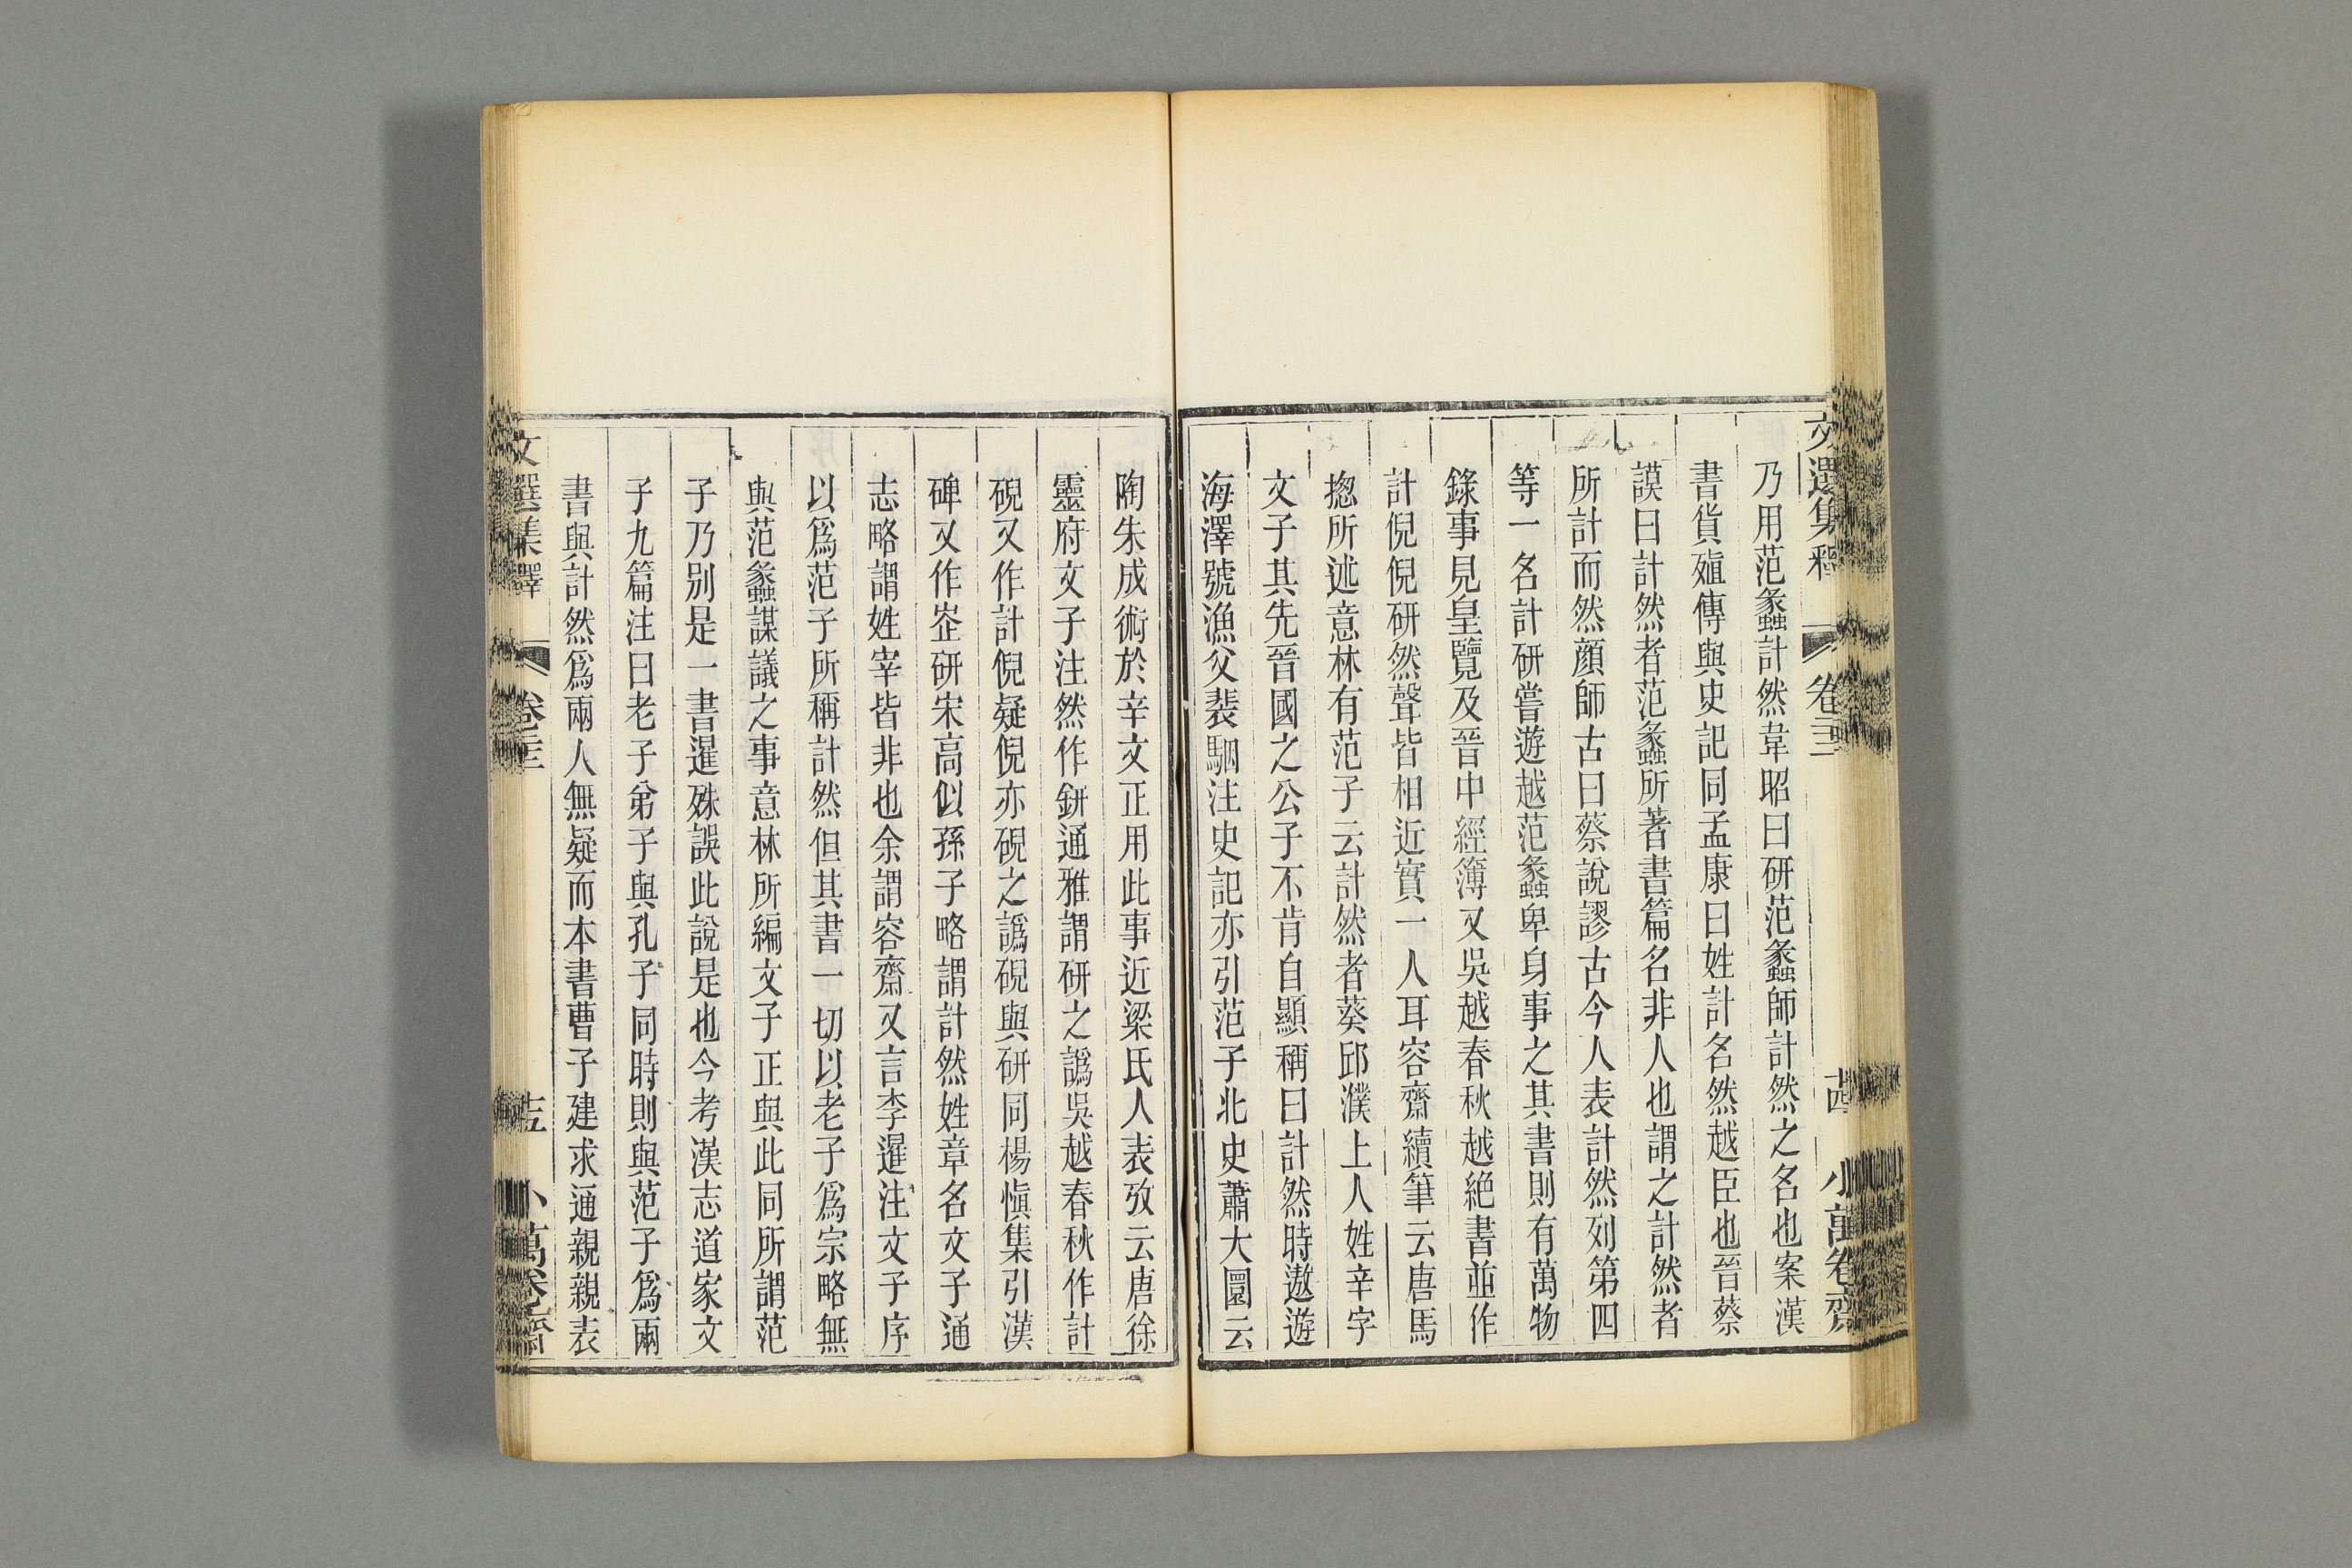 文選集釋 卷二十三 十四 小萬卷齋
乃用范蠡計然韋昭曰研范蠡師計然之名也案漢
書貨殖傳與史記同孟康曰姓計名然越臣也晉蔡
謨曰計然者范蠡所著書篇名非人也謂之計然者
所計而然顔師古曰蔡說謬古今人表計然列第四
等一名計研嘗遊越范蠡卑身事之其書則有萬物
錄事見皇覽及晉中經簿又吳越春秋越絶書並作
計倪倪研然聲皆相近實一人耳容齋續筆云唐馬
揔所述意林有范子云計然者葵邱濮上人姓辛字
文子其先晉國之公子不肯自顯稱曰計然時遨遊
海澤號漁父裴駰注史記亦引范子北史蕭大圜云
陶朱成術於辛文正用此事近梁氏人表攷云唐徐
靈府文子注然作鈃通雅謂研之譌吳越春秋作計
硯又作計倪疑倪亦硯之譌硯與研同楊愼集引漢
碑又作峜研宋高似孫子略謂計然姓章名文子通
志略謂姓宰皆非也余謂容齋又言李暹注文子序
以爲范子所稱計然但其書一切以老子爲宗略無
與范蠡謀議之事意林所編文子正與此同所謂范
子乃别是一書暹殊誤此說是也今考漢志道家文
子九篇注曰老子弟子與孔子同時則與范子爲兩
書與計然爲兩人無疑而本書曹子建求通親親表
文選集釋 卷二十三 十五 小萬卷齋